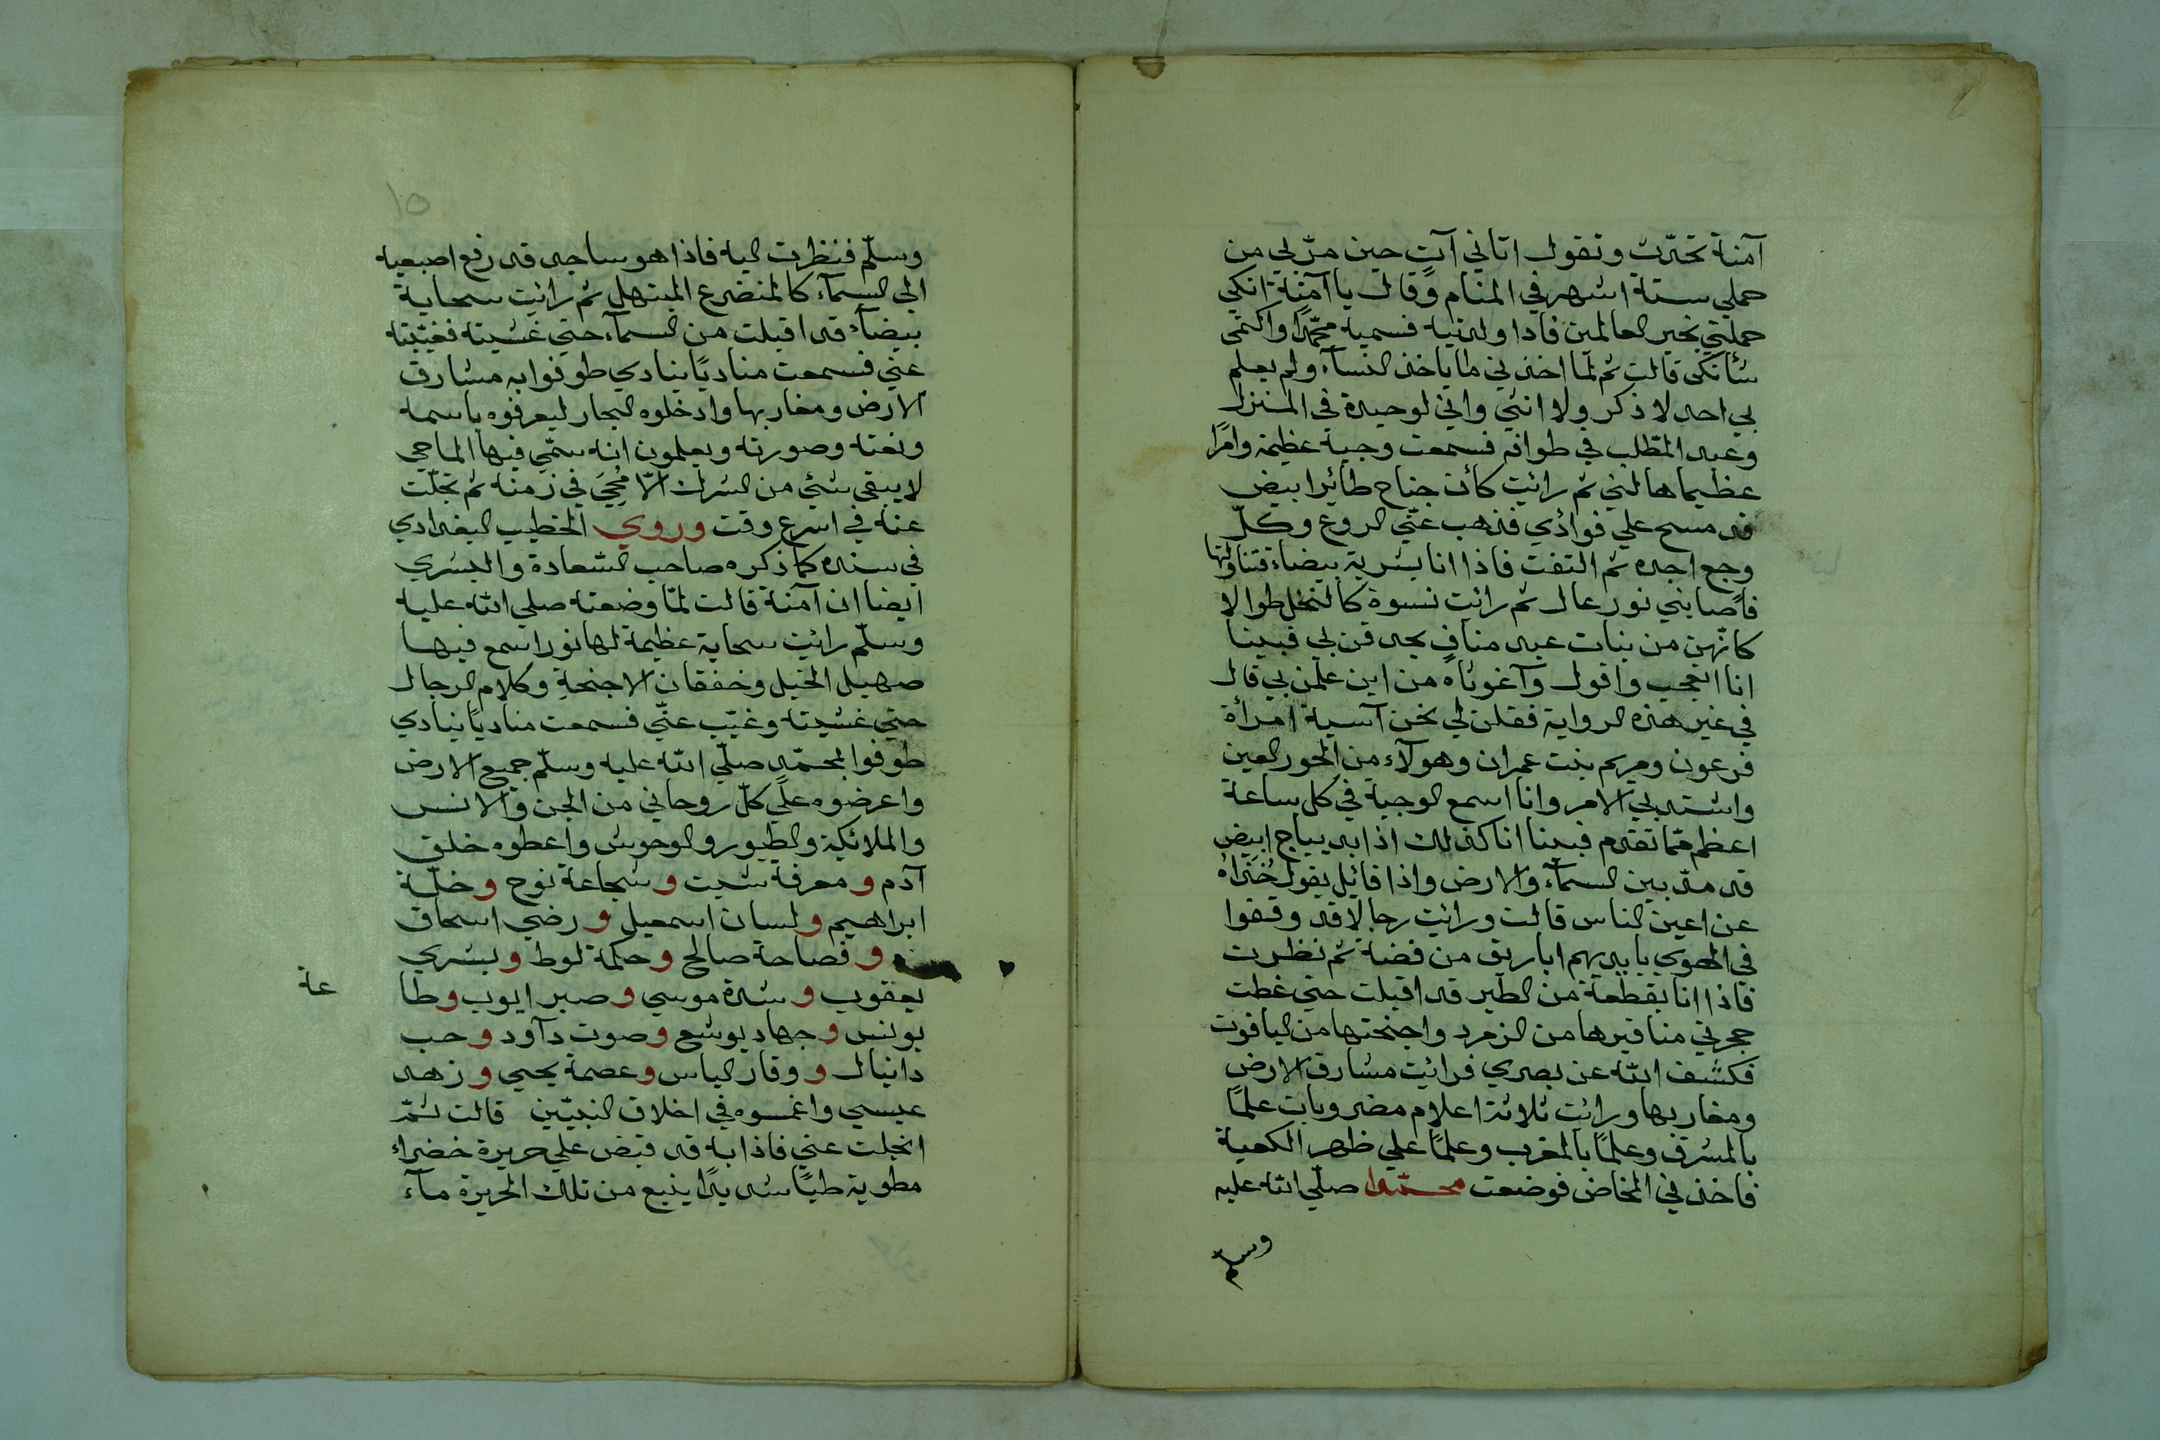 آمنة تحدّث وتقول اتاني آتٍ حين مرّ لي من
حملي ستة اشهر في المنام وقال يا آمنة انكي
حملتي بخير العالمين فاذا ولدتيه فسميه محمّدًا واكتمي
شأنكي قالت ثم لمّا اخذني ما ياخذ النسآء ولم يعلم
بي احد لا ذكر ولا انثي واني لوحيدة في المنزل
وعبد المطّلب في طوافه فسمعت وجبة عظيمة وامرًا
عظيما هالني ثم رائيت كأن جناح طائرا بيض
قد مسح علي فوادي فذهب عنّي الروع وكلّ
وجع اجده ثم التفت فاذا انا بشربة بيضاء فتناولتها
فاصابني نور عال ثم رائيت نسوة كالنخل طوالا
كانّهن من بنات عبد مناف يحدقن بي فبينا
انا اتعجب واقول وآغوثاه من اين علمن بي قال
في غير هذه الرواية فقلن لي نحن آسية امرأة
فرعون ومريم بنت عمران وهولآء من الحور العين
واشتد بي الامر وانا اسمع الوجبة في كل ساعة
اعظم ممّا تقدم فبينا انا كذلك اذا بديباج ابيض
قد مدّ بين السمآء والارض واذا قائل يقول خذاه
عن اعين الناس قالت ورائيت رجالا قد وقفوا
في الهوي بايديهم اباريق من فضة ثم نظرت
فاذا انا بقطعة من الطير قد اقبلت حتي غطت
حجرتي مناقيرها من الزمرد واجنحتها من الياقوت
فكشف الله عن بصري فرائيت مشارق الارض
ومغاربها ورائيت ثلاثة اعلام مضروبات علمًا
بالمشرق وعلمًا بالمغرب وعلمًا علي ظهر الكعبة
فاخذني المخاض فوضعت محمّدا صلّي الله عليه
وسلم
١٥
وسلّم فنظرت اليه فاذا هو ساجد قد رفع اصبعيه
الي السمآء كالمتضرع المبتهل ثم رائيت سحابة
بيضآء قد اقبلت من السمآء حتي غشيته فغيّبته
عني فسمعت مناديًا ينادي طوفوا به مشارق
الارض ومغاربها وادخلوه البحار ليعرفوه باسمه
ونعته وصورته ويعلمون انه سمّي فيها الماحي
لا يبقي شئي من الشرك الّا مُحِيَ في زمنه ثم تجلّت
عنه في اسرع وقت وروي الخطيب البغدادي
في سنده كما ذكره صاحب السّعادة والبشري
ايضا ان آمنة قالت لمّا وضعته صلي الله عليه
وسلّم رائيت سحابة عظيمة لها نور اسمع فيها
صهيل الخيل وخفقان الاجنحةِ وكلام الرجال
حتي غشيته وغيّب عنّي فسمعت مناديًا ينادي
طوفوا بمحمّد صلّي الله عليه وسلّم جميع الارض
واعرضوه علَي كلّ روحاني من الجن والانس
والملائكة والطيور والوحوش واعطوه خلق
آدم ومعرفة شيث وشجاعة نوح وخلّة
ابراهيم ولسان اسمعيل ورضي اسحاق
وفصاحة صالح وحكمة لوط وبشري
يعقوب وشدة موسي وصبر ايوب وطا
عة
يونس وجهاد يوشع وصوت دآود وحب
دانيال ووقار الياس وعصمة يحيي وزهد
عيسي واغمسوه في اخلاق النبيّين قالت ثمّ
انجلت عني فاذا به قد قبض علي حريرة خضراء
مطوية طيًا شديدًا ينبع من تلك الحريرة مآء